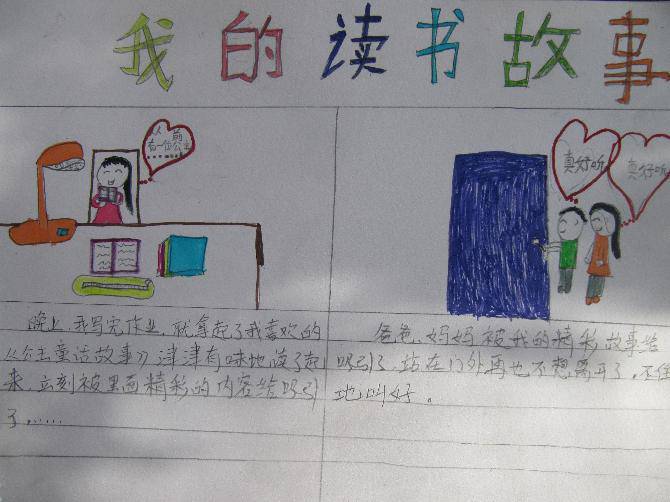 我的读书故事
从前
有一位公主
……
真好听
真好听
晚上,我写完作业,就拿起了我喜欢的
《公主童话故事》津津有味地读了起
来,立刻被里面精彩的内容给吸引
了……
爸爸、妈妈被我的精彩故事给
吸引了,站在门外再也不想离开了,不住
地叫好。